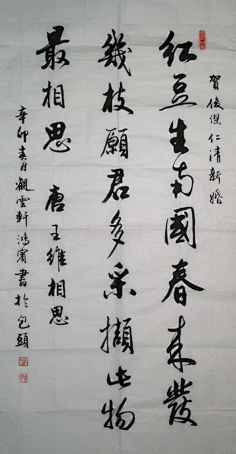 賀俊傑仁清新婚
紅豆生南國春来發
幾枝願君多采擷此物
最相思 唐王維相思
辛卯春月觀雲軒鴻賓書於包頭